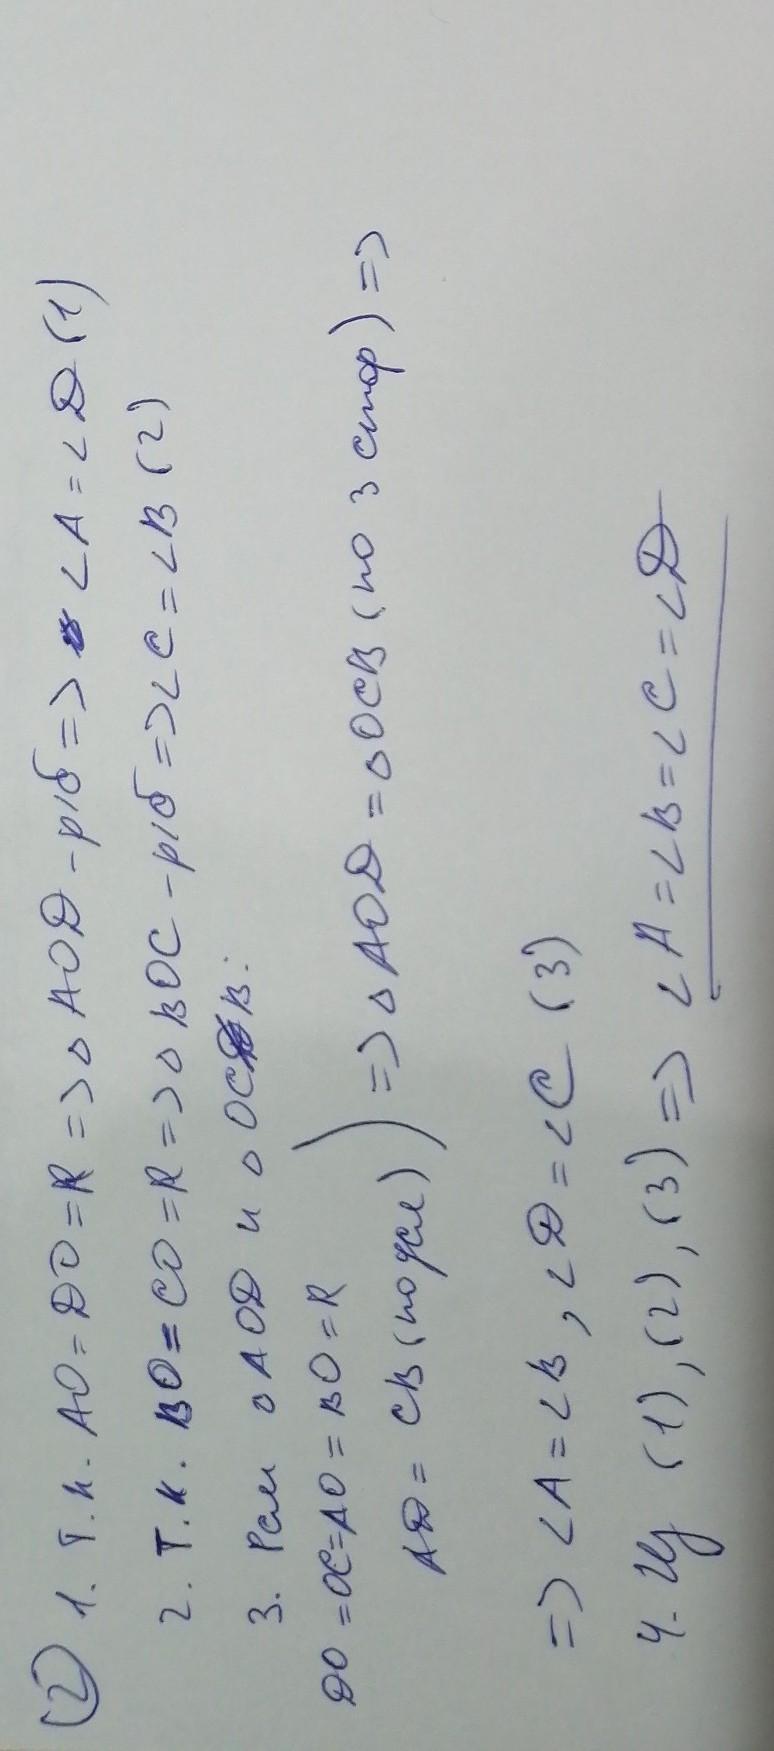 (2) 1. Т.к. AO = DO = R => △AOD - р/б => ∠A = ∠D (1)
2. Т.к. BO = CO = R => △BOC - р/б => ∠C = ∠B (2)
3. Расм △AOD и △OCB:
DO = OC = AO = BO = R
AD = CB (по усл) ) => △AOD = △OCB (по 3 стор) =>
=> ∠A = ∠B, ∠D = ∠C (3)
4. Из (1), (2), (3) => ∠A = ∠B = ∠C = ∠D